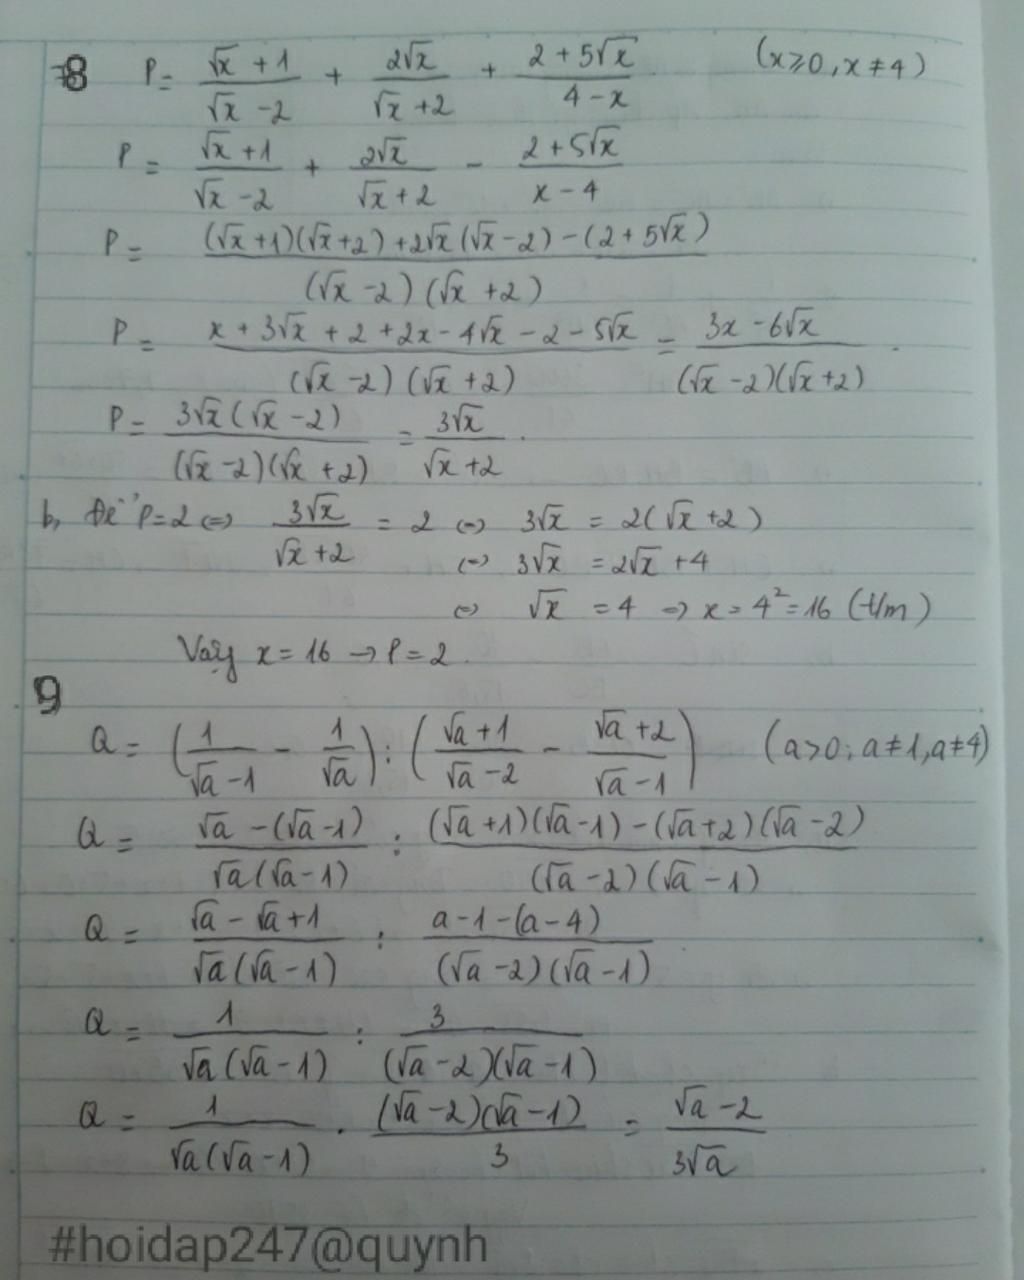 8 P = (√x + 1)/(√x - 2) + 2√x/(√x + 2) + (2 + 5√x)/(4 - x) (x ≥ 0, x ≠ 4)
P = (√x + 1)/(√x - 2) + 2√x/(√x + 2) - (2 + 5√x)/(x - 4)
P = ((√x + 1)(√x + 2) + 2√x(√x - 2) - (2 + 5√x))/((√x - 2)(√x + 2))
P = (x + 3√x + 2 + 2x - 4√x - 2 - 5√x)/((√x - 2)(√x + 2)) = (3x - 6√x)/((√x - 2)(√x + 2)).
P = 3√x(√x - 2)/((√x - 2)(√x + 2)) = 3√x/(√x + 2).
b, Để P = 2 ⇔ 3√x/(√x + 2) = 2 ⇔ 3√x = 2(√x + 2)
⇔ 3√x = 2√x + 4
⇔ √x = 4 ⇒ x = 4² = 16 (t/m)
Vậy x = 16 → P = 2.
9
Q = (1/(√a - 1) - 1/√a) : ((√a + 1)/(√a - 2) - (√a + 2)/(√a - 1)) (a > 0; a ≠ 1, a ≠ 4)
Q = (√a - (√a - 1))/(√a(√a - 1)) : ((√a + 1)(√a - 1) - (√a + 2)(√a - 2))/((√a - 2)(√a - 1))
Q = (√a - √a + 1)/(√a(√a - 1)) : (a - 1 - (a - 4))/((√a - 2)(√a - 1))
Q = 1/(√a(√a - 1)) : 3/((√a - 2)(√a - 1))
Q = 1/(√a(√a - 1)) . (√a - 2)(√a - 1)/3 = (√a - 2)/(3√a)
#hoidap247@quynh